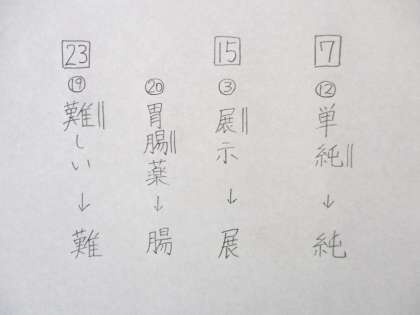 7
⑫
単純
↓
純
15
③
展示
↓
展
⑳
胃腸薬
↓
腸
23
⑲
難しい
↓
難